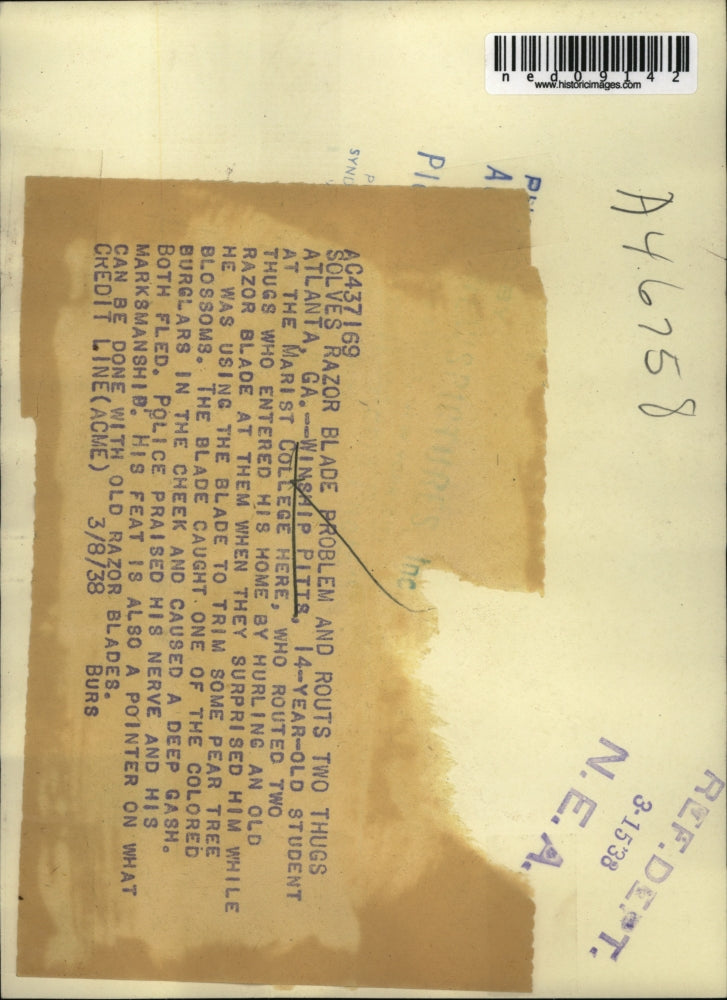 ned09142
www.historicimages.com
A44758
REF. DEPT.
3-15'38
N.E.A.
AC437169
SOLVES RAZOR BLADE PROBLEM AND ROUTS TWO THUGS
ATLANTA, GA.--WINSHIP PITTS, 14-YEAR-OLD STUDENT
AT THE MARIST COLLEGE HERE, WHO ROUTED TWO
THUGS WHO ENTERED HIS HOME BY HURLING AN OLD
RAZOR BLADE AT THEM WHEN THEY SURPRISED HIM WHILE
HE WAS USING THE BLADE TO TRIM SOME PEAR TREE
BLOSSOMS. THE BLADE CAUGHT ONE OF THE COLORED
BURGLARS IN THE CHEEK AND CAUSED A DEEP GASH.
BOTH FLED. POLICE PRAISED HIS NERVE AND HIS
MARKSMANSHIP. HIS FEAT IS ALSO A POINTER ON WHAT
CAN BE DONE WITH OLD RAZOR BLADES.
CREDIT LINE(ACME) 3/8/38 BURS